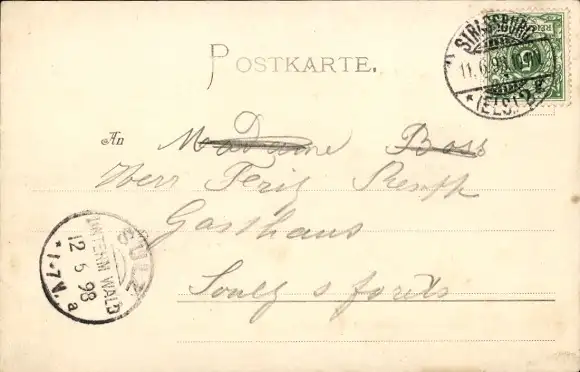 POSTKARTE.
STRASSBURG
11.6.98
* (ELS.) 2 *
An Madame Boss
Herr Fritz
Gasthaus
Soultz s forêts
SULZ
UNTERM WALD
12 6 98
* 1-7 N. a